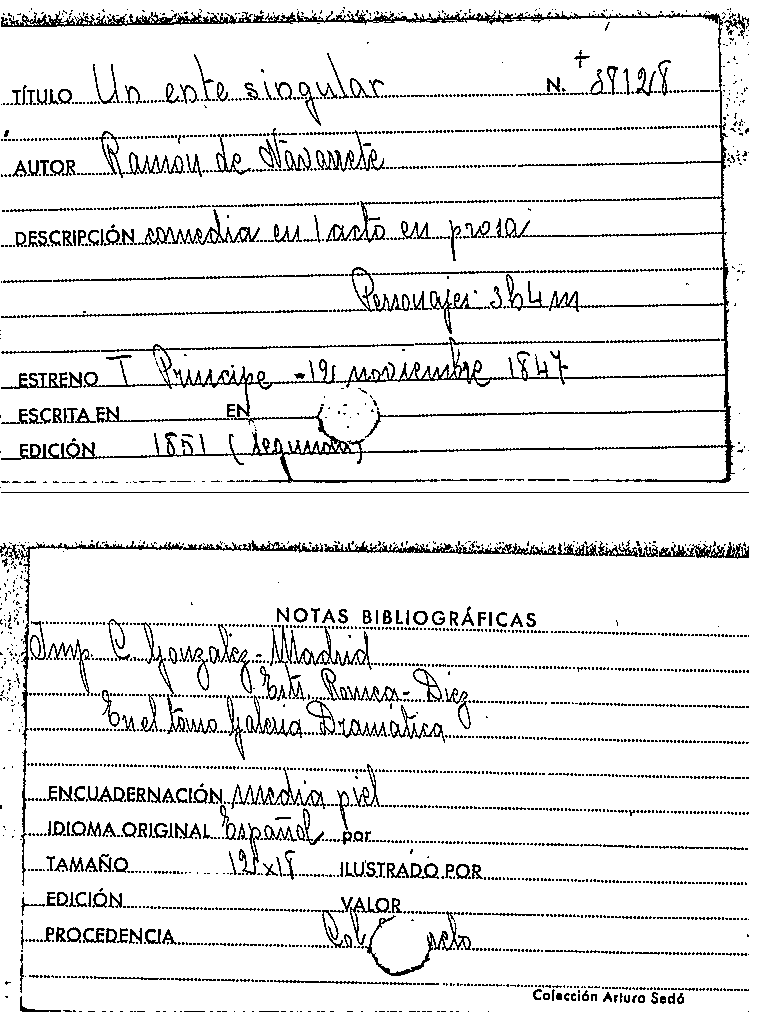 TÍTULO Un ente singular N. + 38128
AUTOR Ramón de Navarrete
DESCRIPCIÓN comedia en 1 acto en prosa
Personajes: 3h 4m
ESTRENO T Principe - 12 noviembre 1847
ESCRITA EN EN
EDICIÓN 1851 (Segunda)
NOTAS BIBLIOGRÁFICAS
Imp. C. Gonzalez - Madrid
Estr. Romea - Diez
En el tomo Galeria Dramática
ENCUADERNACIÓN media piel
IDIOMA ORIGINAL Español por
TAMAÑO 12x18 ILUSTRADO POR
EDICIÓN VALOR
PROCEDENCIA
Colección Arturo Sedó